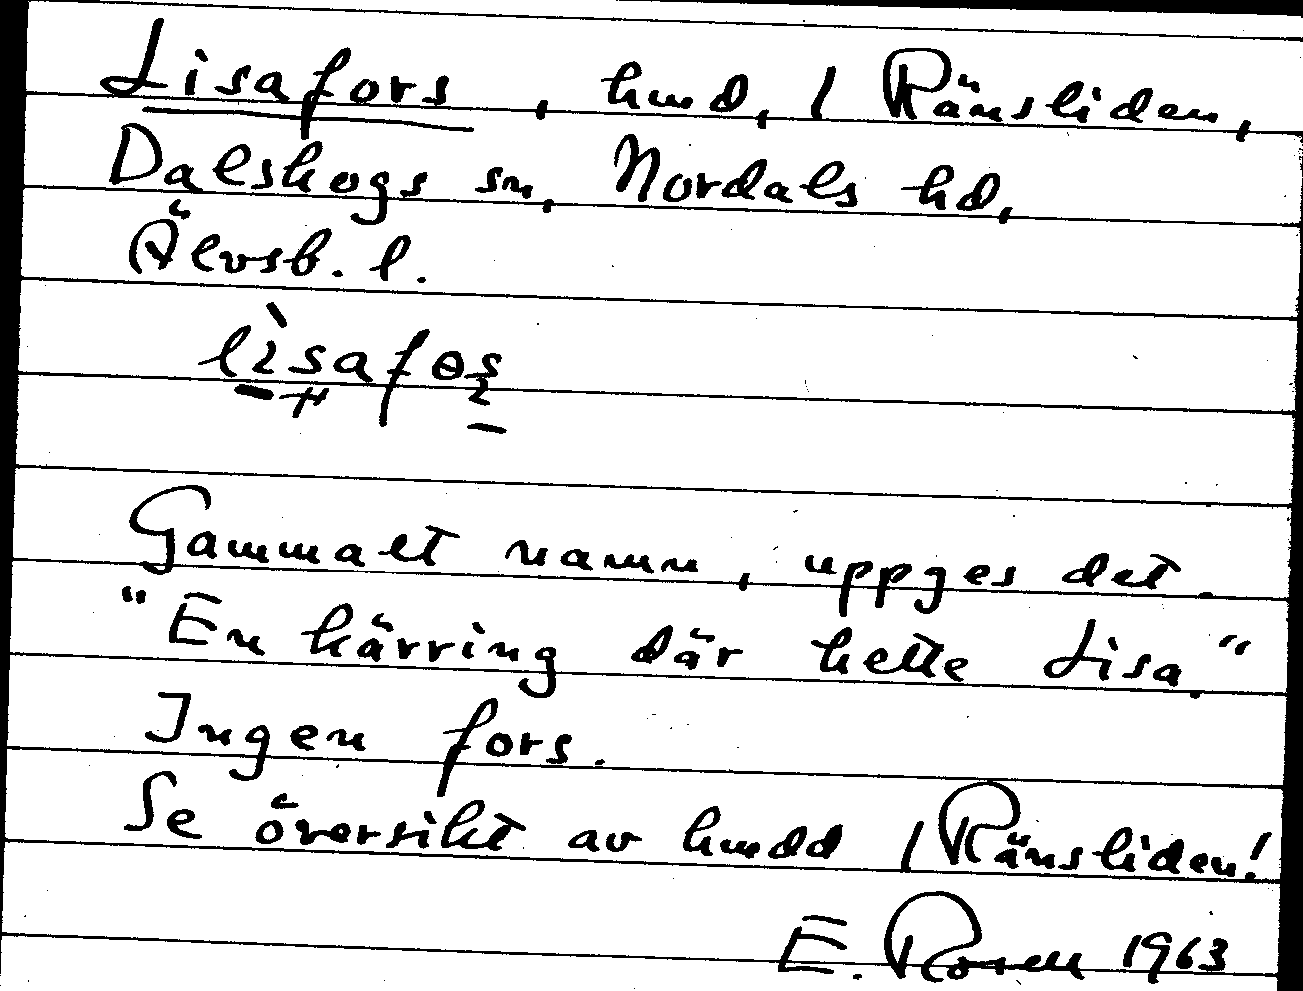 Lisafors, hmd, 1 Ränsliden,
Dalskogs sn, Nordals hd,
Älvsb. l.
Gammalt namn, uppges det.
"En kärring där hette Lisa."
Ingen fors.
Se översikt av hmdd 1 Ränsliden!
E. Rosell 1963